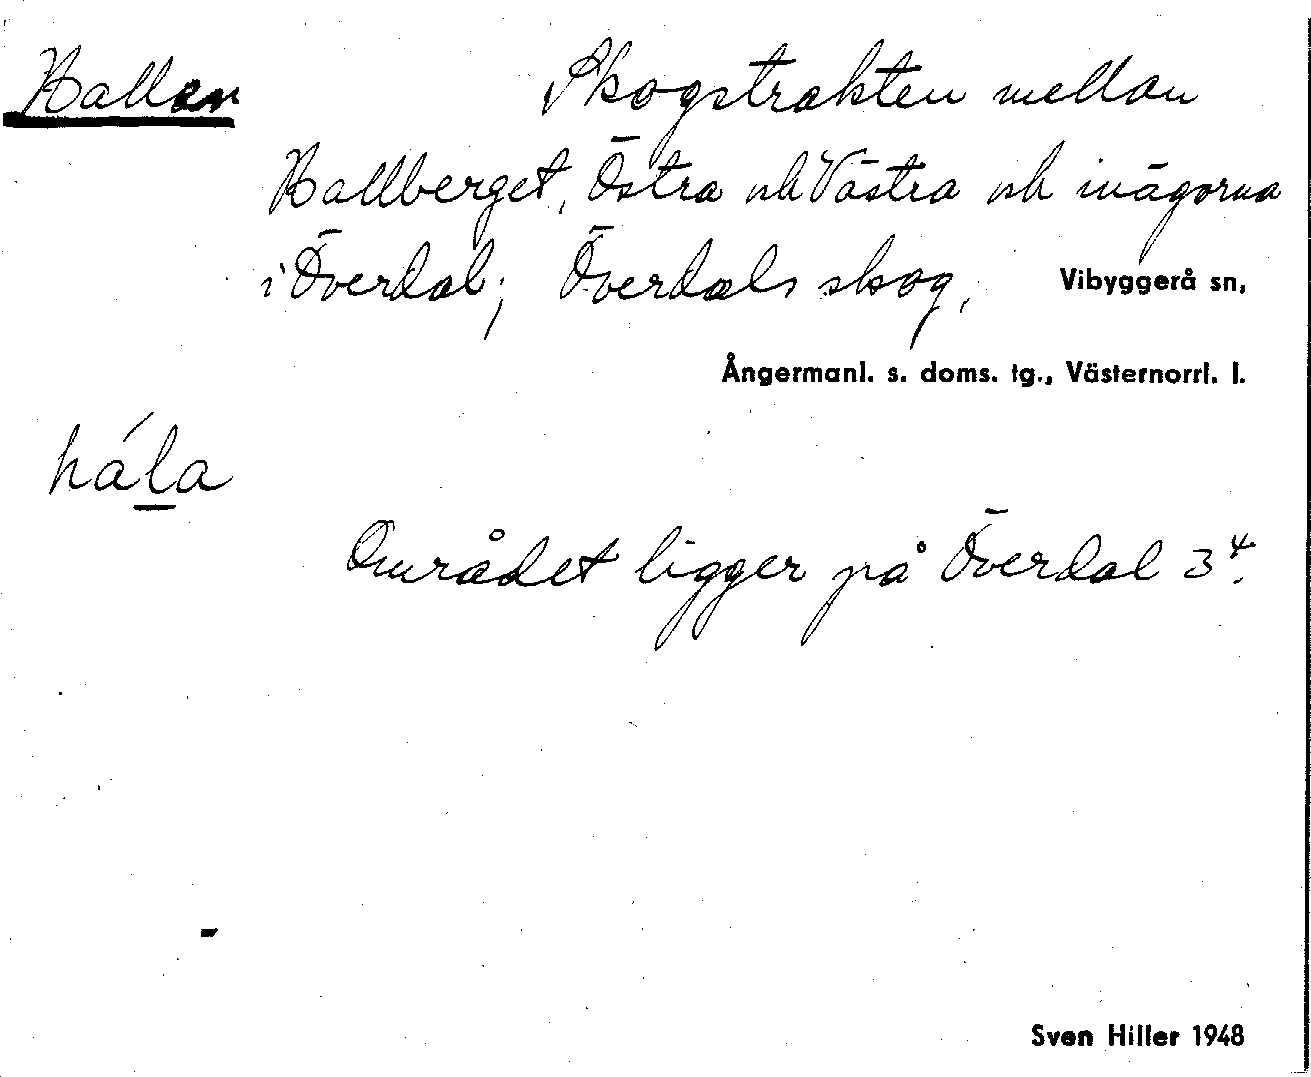 Hallen Skogstrakten mellan
Hallberget, Östra och Västra och inägorna
i Överdal; Överdals skog, Vibyggerå sn,
Ångermanl. s. doms. tg., Västernorrl. l.
hála
Området ligger på Överdal 3⁴.
Sven Hiller 1948